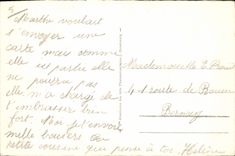 Marthe voulait
t'envoyer une
carte mais comme
elle est partie elle
ne pourra pas
elle m'a chargé de
t'embrasser bien
fort. Moi je t'envoie
mille baisers ta
petite cousine qui pense à toi Hélène
Mademoiselle L.
41 route de
Bernay